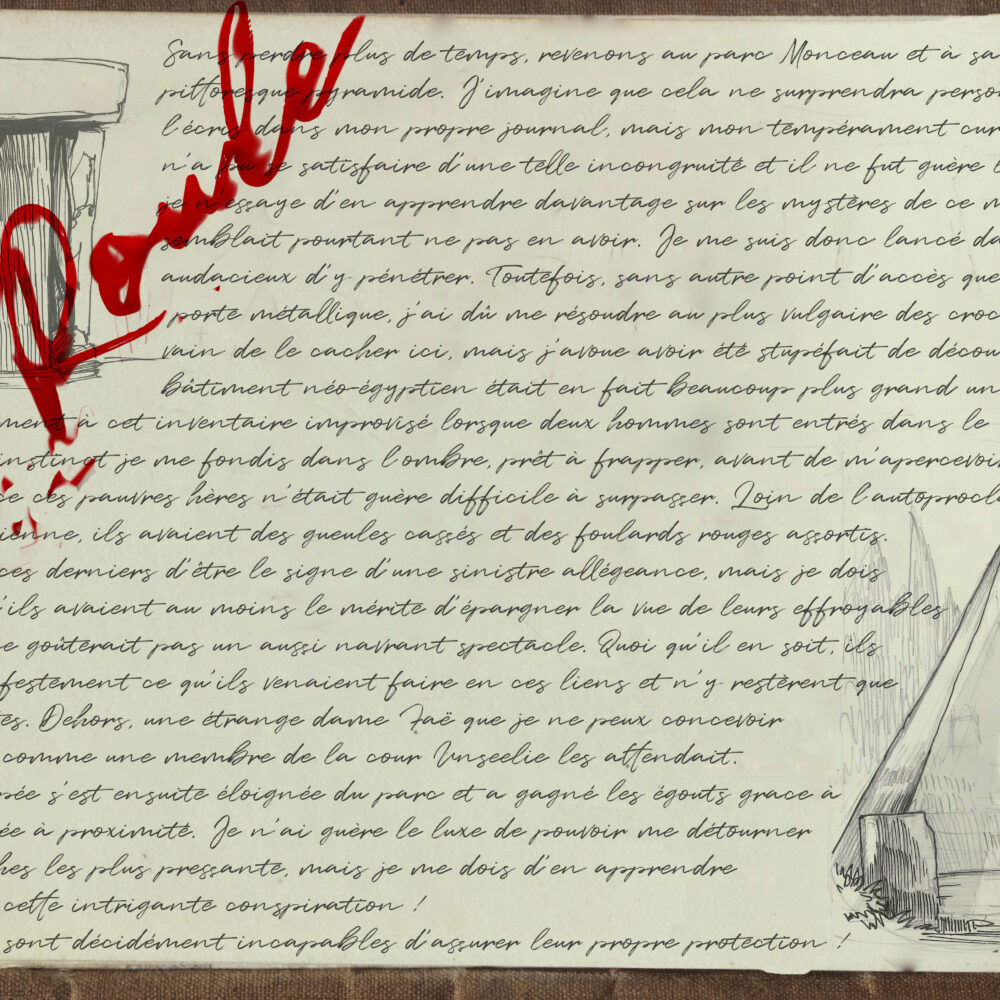 Roule
Sans perdre plus de temps, revenons au parc Monceau et à sa
pittoresque pyramide. J'imagine que cela ne surprendra perso
l'écris dans mon propre journal, mais mon tempérament cur
n'a pu se satisfaire d'une telle incongruité et il ne fut guère
je n'essaye d'en apprendre davantage sur les mystères de ce m
semblait pourtant ne pas en avoir. Je me suis donc lancé da
audacieux d'y pénétrer. Toutefois, sans autre point d'accès que
porte métallique, j'ai dû me résoudre au plus vulgaire des croc
vain de le cacher ici, mais j'avoue avoir été stupéfait de décou
bâtiment néo-égyptien était en fait beaucoup plus grand un
ment à cet inventaire improvisé lorsque deux hommes sont entrés dans le
instinct je me fondis dans l'ombre, prêt à frapper, avant de m'apercevoir
ce ces pauvres hères n'était guère difficile à surpasser. Loin de l'autoprocla
ienne, ils avaient des gueules cassés et des foulards rouges assortis.
ces derniers d'être le signe d'une sinistre allégeance, mais je dois
'ils avaient au moins le mérite d'épargner la vue de leurs effroyables
e goûterait pas un aussi navrant spectacle. Quoi qu'il en soit, ils
festement ce qu'ils venaient faire en ces liens et n'y restèrent que
tes. Dehors, une étrange dame Faë que je ne peux concevoir
comme une membre de la cour Unseelie les attendait.
pée s'est ensuite éloignée du parc et a gagné les égouts grace à
ée à proximité. Je n'ai guère le luxe de pouvoir me détourner
hes les plus pressante, mais je me dois d'en apprendre
cette intrigante conspiration !
sont décidément incapables d'assurer leur propre protection !